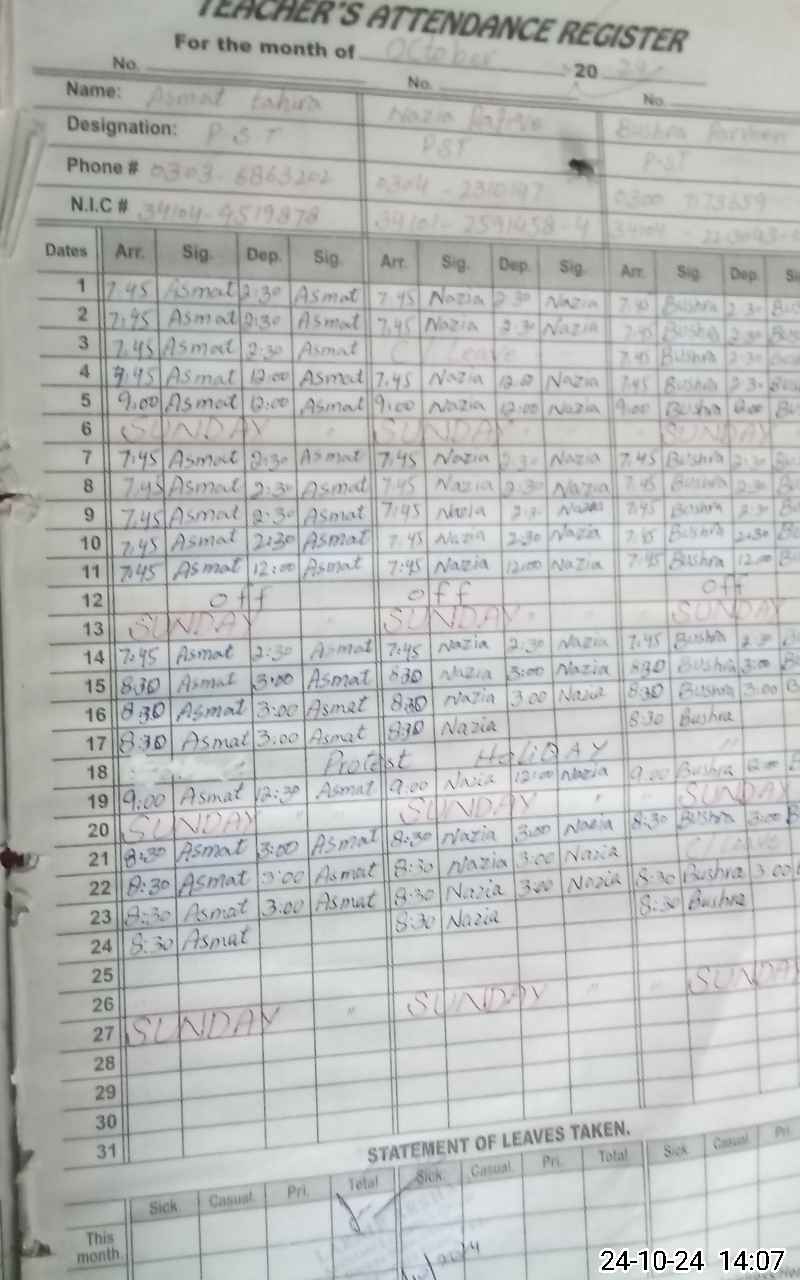 TEACHER'S ATTENDANCE REGISTER
For the month of October 20 24
No. No. No.
Name: Asmat tahira Nazia Bushra Parveen
Designation: PST PST PST
Phone # 0303-6863202 0304-2310147 0300 7173659
N.I.C # 34104-9519878 34101-2591458-4 34104-
Dates Arr. Sig. Dep. Sig. Arr. Sig. Dep. Sig. Arr. Sig. Dep.
1 7.45 Asmat 2:30 Asmat 7 45 Nazia 2 30 Nazia 7.45 Bushra 2 30
2 7:45 Asmat 2:30 Asmat 7.45 Nazia 2 30 Nazia 7.45 Bushra 2 30
3 7.45 Asmat 2:30 Asmat C/Leave 7.45 Bushra 2:30
4 7.45 Asmat 12:00 Asmat 7.45 Nazia 12.00 Nazia 7.45 Bushra 2 3
5 9.00 Asmat 12:00 Asmat 9:00 Nazia 12:00 Nazia 9:00 Bushra
6 SUNDAY " SUNDAY SUNDAY
7 7:45 Asmat 2:30 Asmat 7:45 Nazia 2:30 Nazia 7.45 Bushra 2:30
8 7.45 Asmat 2:30 Asmat 7:45 Nazia 2:30 Nazia 7.45 Bushra 2:30
9 7.45 Asmat 2:30 Asmat 7:45 Nazia Nazia 7:45 Bushra 2:30
10 7.45 Asmat 2:30 Asmat 7.45 Nazia 2:30 Nazia 7.45 Bushra 2:30
11 7:45 Asmat 12:00 Asmat 7:45 Nazia 12:00 Nazia 7:45 Bushra 12.00
12 off off off
13 SUNDAY " SUNDAY " SUNDAY
14 7:45 Asmat 2:30 Asmat 7:45 Nazia 2:30 Nazia 7.45 Bushra 2:30
15 8:30 Asmat 3:00 Asmat 8:30 Nazia 3:00 Nazia 8:30 Bushra 3:00
16 8:30 Asmat 3:00 Asmat 8:30 Nazia 3 00 Nazia 8:30 Bushra 3:00
17 8:30 Asmat 3:00 Asmat 8:30 Nazia 8:30 Bushra
18 Protest HoliDAY "
19 9:00 Asmat 12:30 Asmat 9:00 Nazia 12:00 Nazia 9:00 Bushra
20 SUNDAY " SUNDAY " SUNDAY
21 8:30 Asmat 3:00 Asmat 8:30 Nazia 3:00 Nazia 8:30 Bushra 3:00
22 8:30 Asmat 3:00 Asmat 8:30 Nazia 3:00 Nazia C/Leave
23 8:30 Asmat 3:00 Asmat 8:30 Nazia 3:00 Nazia 8:30 Bushra 3 00
24 8:30 Asmat 8:30 Nazia 8:30 Bushra
25
26
27 SUNDAY " SUNDAY " " SUNDAY
28
29
30
31
STATEMENT OF LEAVES TAKEN.
Sick. Casual. Pri. Total Sick. Casual. Pri. Total Sick. Casual. Pri.
This month.
24-10-24 14:07